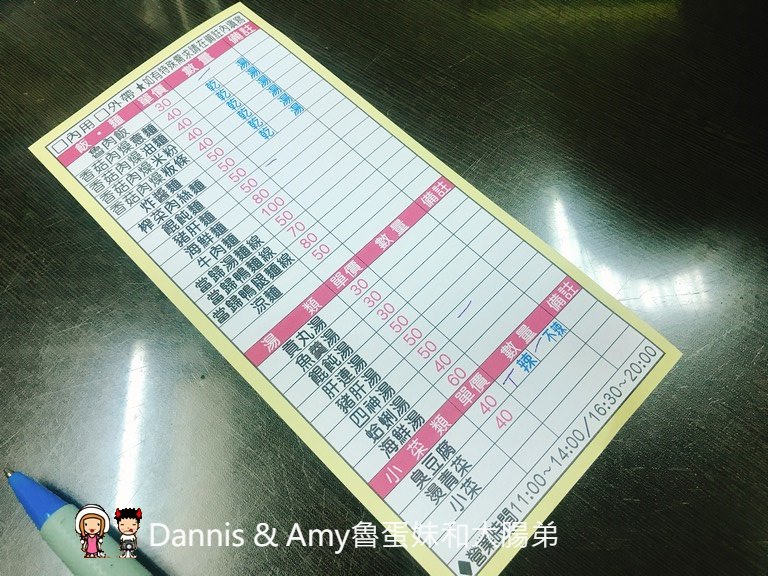 □內用 □外帶 ★如有特殊需求請在備註內填寫
飯・麵 單價 數量 備註
魯肉飯 30
香菇肉燥意麵 40 乾 湯
香菇肉燥油麵 40 乾 湯
香菇肉燥米粉 40 乾 湯
香菇肉燥板條 40 乾 湯
炸醬麵 50
榨菜肉絲麵 50
餛飩麵 50
豬肝麵 50
海鮮麵 80
牛肉麵 100
當歸湯麵線 50
當歸鴨麵線 70
當歸鴨腿麵線 80
涼麵 50
湯類 單價 數量 備註
貢丸湯 30
魚羹湯 30
餛飩湯 50
肝連湯 50
豬肝湯 50
四神湯
蛤蜊湯 40
海鮮湯 60
小菜類 單價 數量 備註
臭豆腐 40 辣 不辣
燙青菜 40
小菜
◆營業時間11:00~14:00/16:30~20:00
Dannis & Amy魯蛋妹和大腸弟